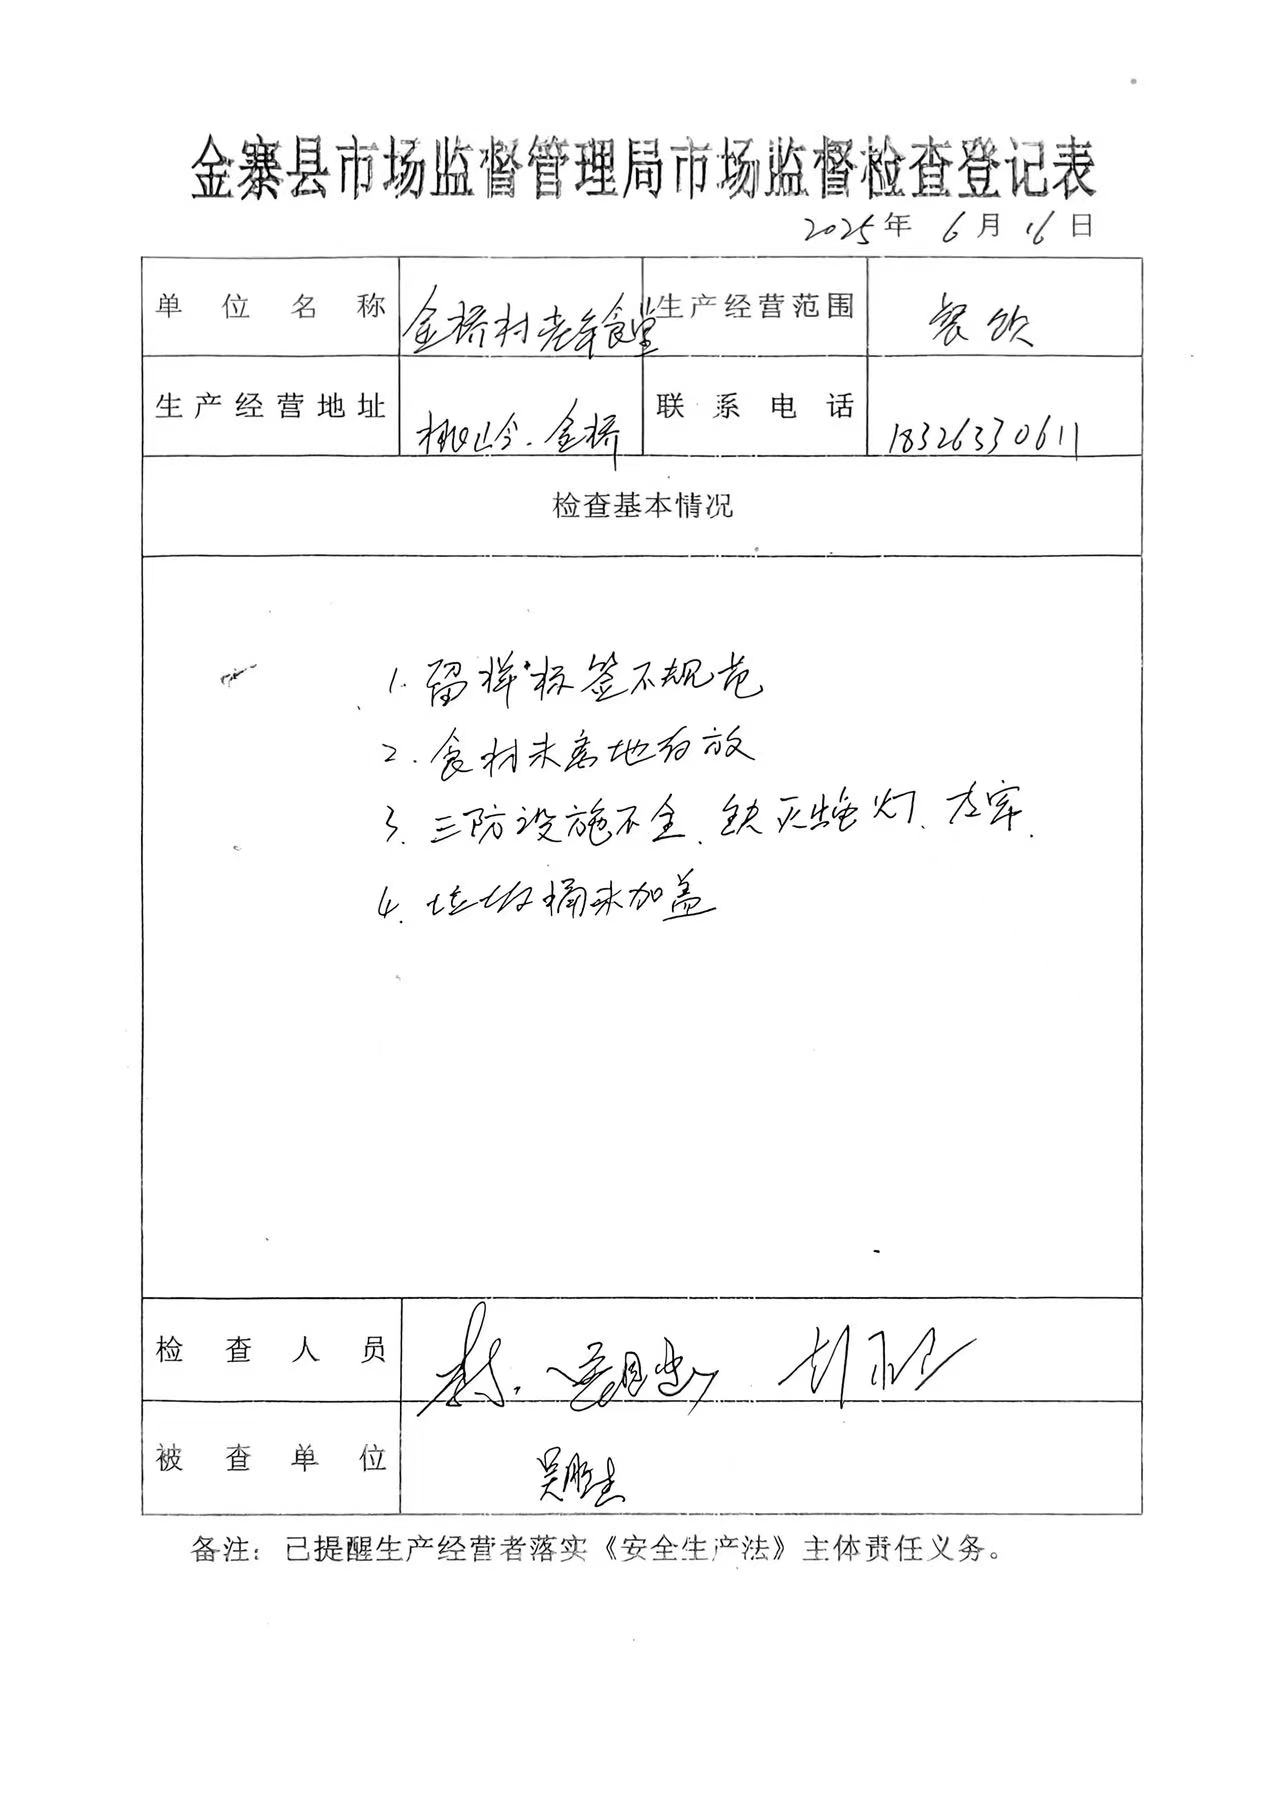 金寨县市场监督管理局市场监督检查登记表
2025年 6月 16日
单位名称 金桥村老年食堂 生产经营范围 餐饮
生产经营地址 桃岭.金桥 联系电话 18326330611
检查基本情况
1.留样标签不规范
2.食材未离地存放
3.三防设施不全、缺灭蝇灯、
4.垃圾桶未加盖
检查人员
被查单位 吴胜
备注：已提醒生产经营者落实《安全生产法》主体责任义务。